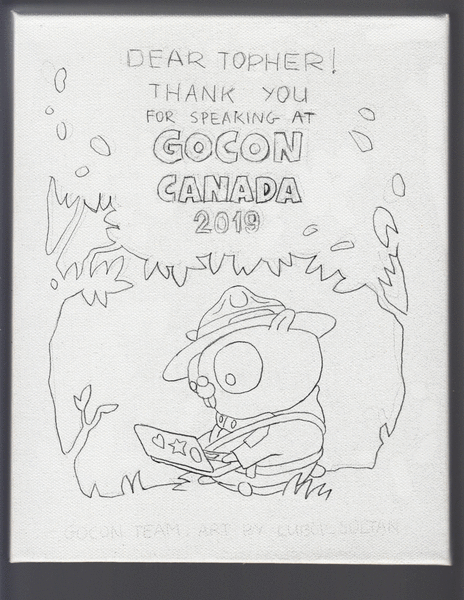 DEAR TOPHER!
THANK YOU
FOR SPEAKING AT
GOCON
CANADA
2019
GOCON TEAM. ART BY SULTAN